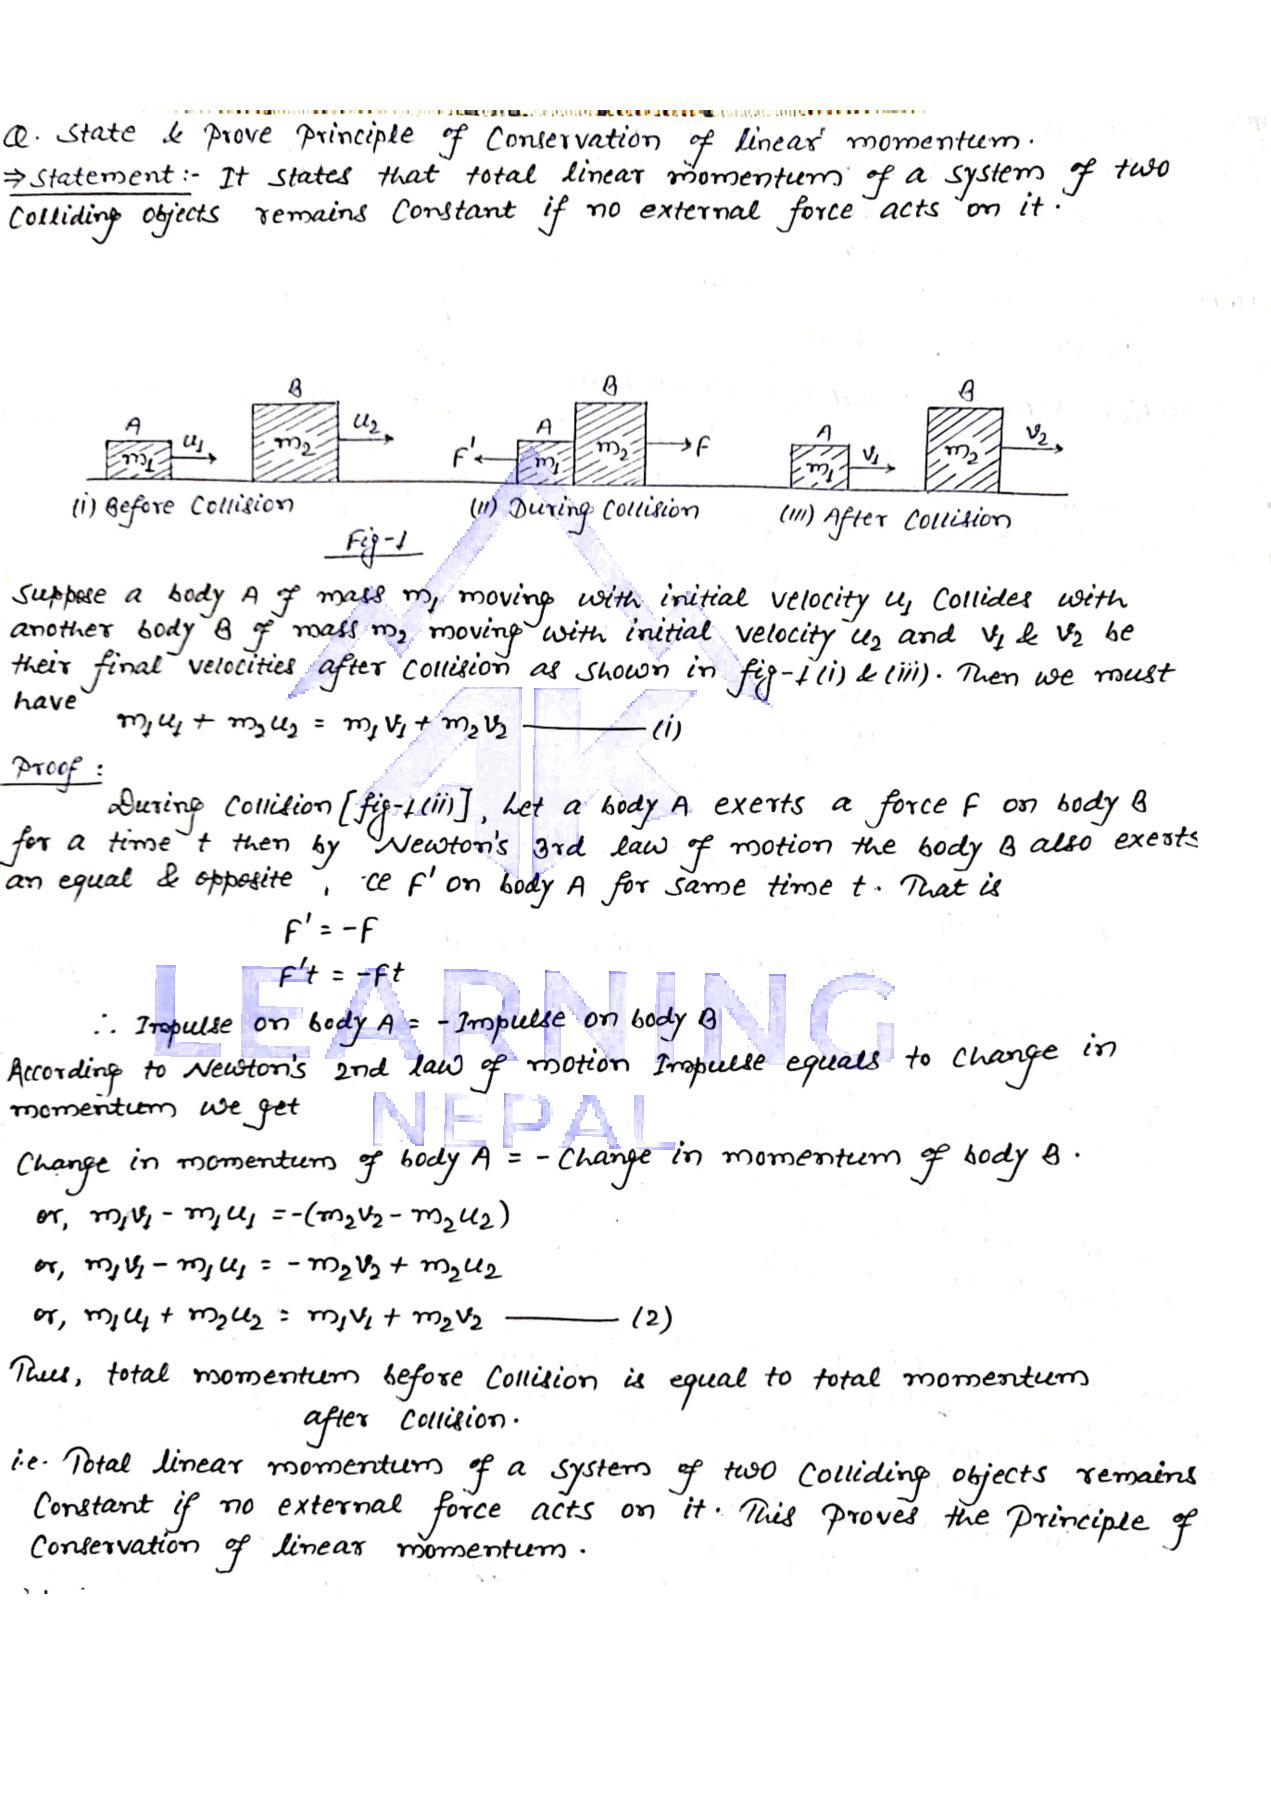 Q. State & Prove Principle of Conservation of linear momentum.
⇒ Statement :- It states that total linear momentum of a system of two
Colliding objects remains Constant if no external force acts on it.
A B A B A B
m₁ u₁ m₂ u₂ F' m₁ m₂ F m₁ v₁ m₂ v₂
(i) Before Collision (ii) During Collision (iii) After Collision
Fig-1
Suppose a body A of mass m₁ moving with initial velocity u₁ Collides with
another body B of mass m₂ moving with initial velocity u₂ and v₁ & v₂ be
their final velocities after collision as shown in fig-1(i) & (iii). Then we must
have
m₁u₁ + m₂u₂ = m₁v₁ + m₂v₂ ——— (i)
Proof :
During Collision [fig-1(ii)], Let a body A exerts a force F on body B
for a time t then by Newton's 3rd law of motion the body B also exerts
an equal & opposite , ce F' on body A for same time t. That is
F' = -F
F't = -Ft
LEARNING
∴ Impulse on body A = - Impulse on body B
According to Newton's 2nd law of motion Impulse equals to change in
momentum we get
NEPAL
Change in momentum of body A = - Change in momentum of body B.
or, m₁v₁ - m₁u₁ = -(m₂v₂ - m₂u₂)
or, m₁v₁ - m₁u₁ = - m₂v₂ + m₂u₂
or, m₁u₁ + m₂u₂ = m₁v₁ + m₂v₂ ——— (2)
Thus, total momentum before Collision is equal to total momentum
after Collision.
i.e. Total linear momentum of a system of two Colliding objects remains
Constant if no external force acts on it. This Proves the Principle of
Conservation of linear momentum.